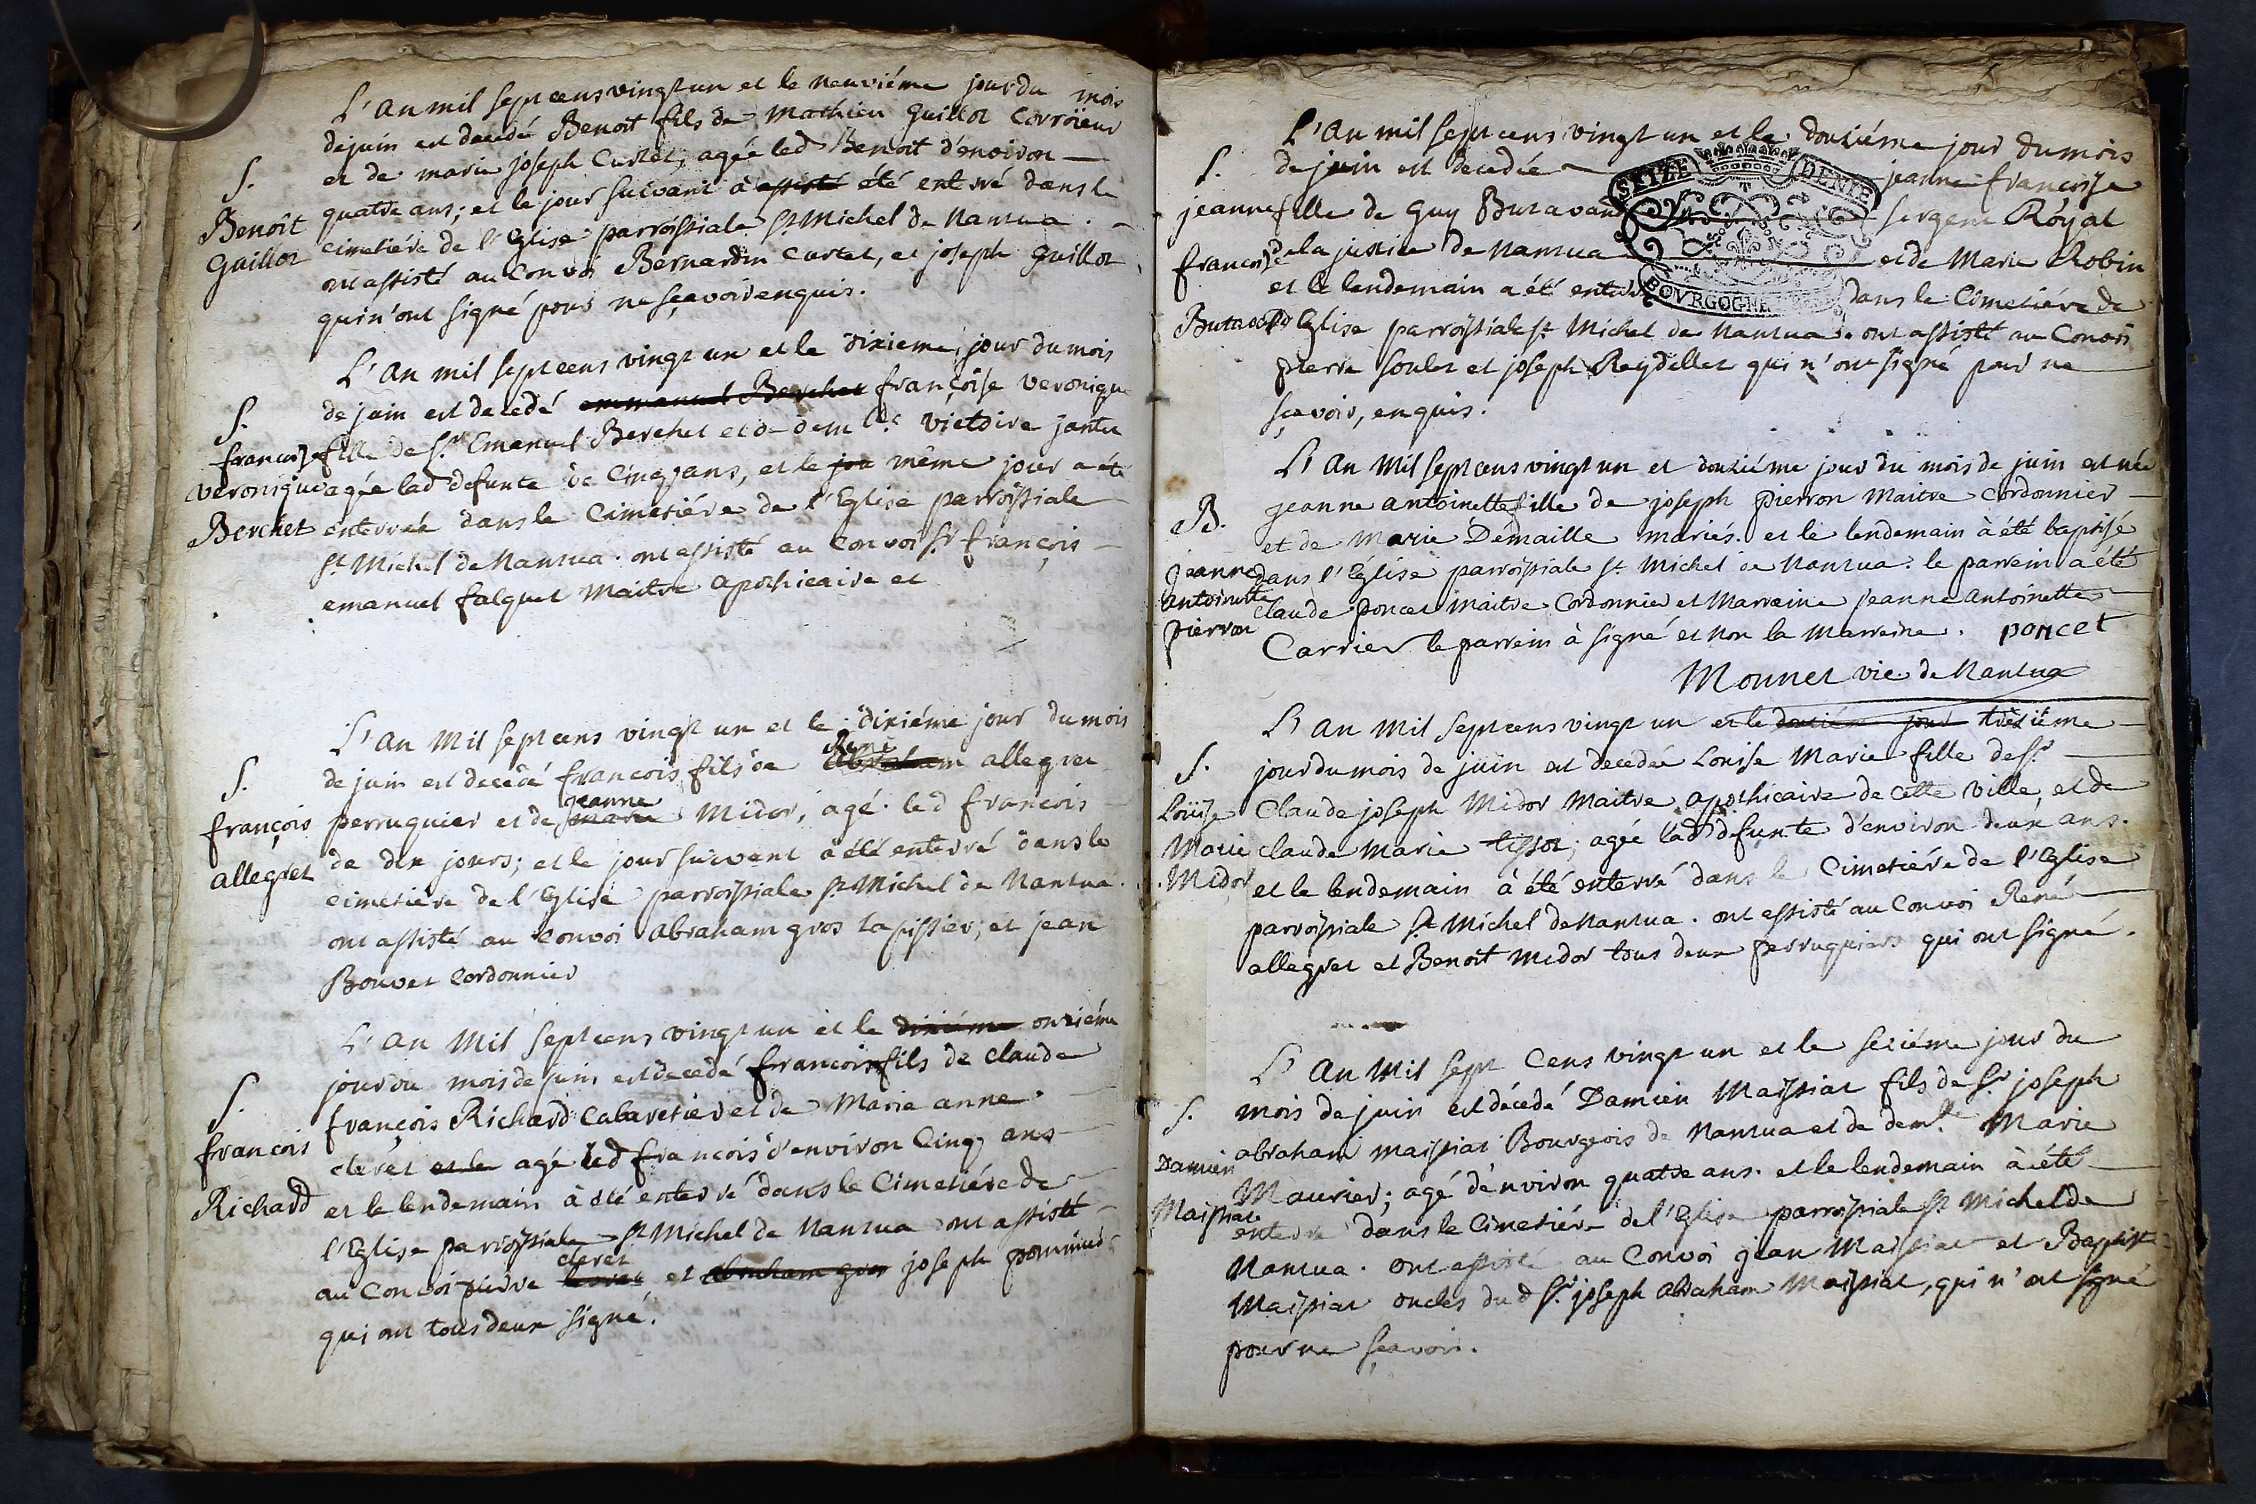 L'an mil sept cens vingt un et le neuviéme jour du mois
de juin est decedé Benoit fils de Mathieu Guillot Corroieur
et de marie joseph Curtet, agée led Benoit d'environ
quatre ans; et le jour suivant à assisté été enterré dans le
S.
Benoît
Guillot
cimetiére de l'Eglise parroissiale St Michel de Nantua.
ont assisté au Convoi Bernardin Curtet, et joseph Guillot
qui n'ont signé pour ne sçavoir enquis.
L'an mil sept cens vingt un et le dixieme jour du mois
de juin est decedé emmanuel Berchet françoise veronique
S.
françoise
veronique
Berchet
fille de Sr Emanuel Berchet et de demlle victoire jantet
agée lad defunte de Cinq ans, et le jou même jour a été
enterrée dans le Cimetiére de l'Eglise parroissiale
St Michel de Nantua. ont assisté au Convoi Sr françois
emanuel falquet Maitre Apothicaire et
L'an Mil sept cens vingt un et le dixiéme jour du mois
de juin est decedé francois fils de Abraham René allegret
S.
françois
allegret
perruquier et de marie jeanne Midor, agé led françois
de dix jours; et le jour suivant à été enterré dans le
cimetiére de l'Eglise parroissiale St Michel de Nantua.
ont assisté au Convoi Abraham gros tapissier, et jean
Bouvet Cordonnier
L'an Mil sept cens vingt un et le dixiéme onziéme
jour du mois de juin est decedé françois fils de claude
S.
françois
Richard
françois Richard Cabaretier et de Marie anne
cleret et le agé led françois d'environ Cinq ans
et le lendemain à été enterré dans le Cimetiére de
l'Eglise parroissiale St Michel de Nantua ont assisté
au Convoi pierre cleret et Abraham gros joseph
qui ont tous deux signé.
L'an mil sept cens vingt un et le douziéme jour du mois
de juin est decedée jeanne françoise
S.
jeanne
françoise
fille de Guy Butavand sergent Róyal
de la justice de Nantua et de Marie Robin
et le lendemain a été enterré dans le Cimetiére de
l'Eglise parroissiale St Michel de Nantua. ont assisté au Convoi
pierre soulet et joseph Reydellet qui n'ont signé pour ne
sçavoir, enquis.
SEIZE DENIE
BOVRGOGNE
L'an Mil sept cens vingt un et douziéme jour du mois de juin est née
jeanne antoinette fille de joseph pierron Maitre Cordonnier
B.
jeanne
antoinette
pierron
et de Marie Démaille mariés. et le lendemain à été baptisé
dans l'Eglise parroissiale St Michel de Nantua. le parrein a été
claude poncet maitre Cordonnier et Marreine jeanne Antoinette
Carrier le parrein à signé et non la Marreine. poncet
Monnet vic de Nantua
L'an Mil Sept cens vingt un et le douziéme jour trèsiéme
jour du mois de juin est decedée Louise Marie fille de Sr
S.
Loüise
Marie
Midor
Claude joseph Midor Maitre Apothicaire de cette Ville, et de
claude Marie tissot; agée lad defunte d'environ deux ans.
et le lendemain à été enterré dans le Cimetiére de l'Eglise
parroissiale St Michel de Nantua. ont assisté au Convoi René
allegret et Benoît midor tous deux perruquiers qui ont signé.
L'an Mil sept Cens vingt un et le seziéme jour du
mois de juin est décédé Damien Maissiat fils de Sr joseph
S.
Damien
Maissiat
abraham maissiat Bourgeois de Nantua et de demlle Marie
Maurier; agé d'environ quatre ans. et le lendemain à été
enterré dans le Cimetiére de l'Eglise parroissiale St Michel de
Nantua. ont assisté au Convoi jean Maissiat et Baptiste
Maissiat oncles dud Sr joseph Abraham Maissiat, qui n'ont signé
pour ne sçavoir.